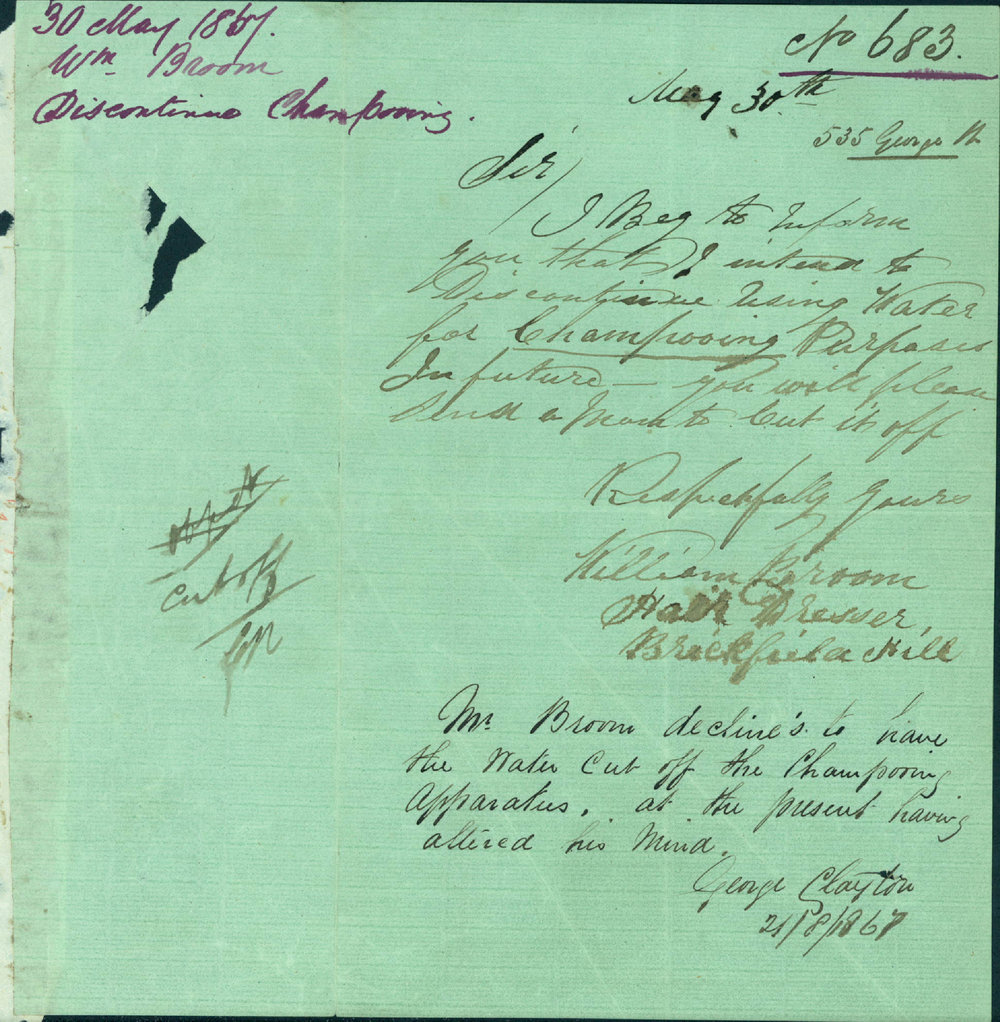 30 May 1867.
Wm Broom
Discontinue Champooing.
No 683.
May 30th
535 George St
Sir/
I Beg to Inform
you that I intend to
Discontinue Using Water
for Champooing Purposes
In future — you will please
Send a Man to Cut it off
Respectfully yours
William Broom
Hair Dresser,
Brickfield Hill
Cut off
Mr Broom decline's to have
the Water Cut off the Champooing
apparatus. at the present having
altered his Mind.
George Clayton
21/8/1867